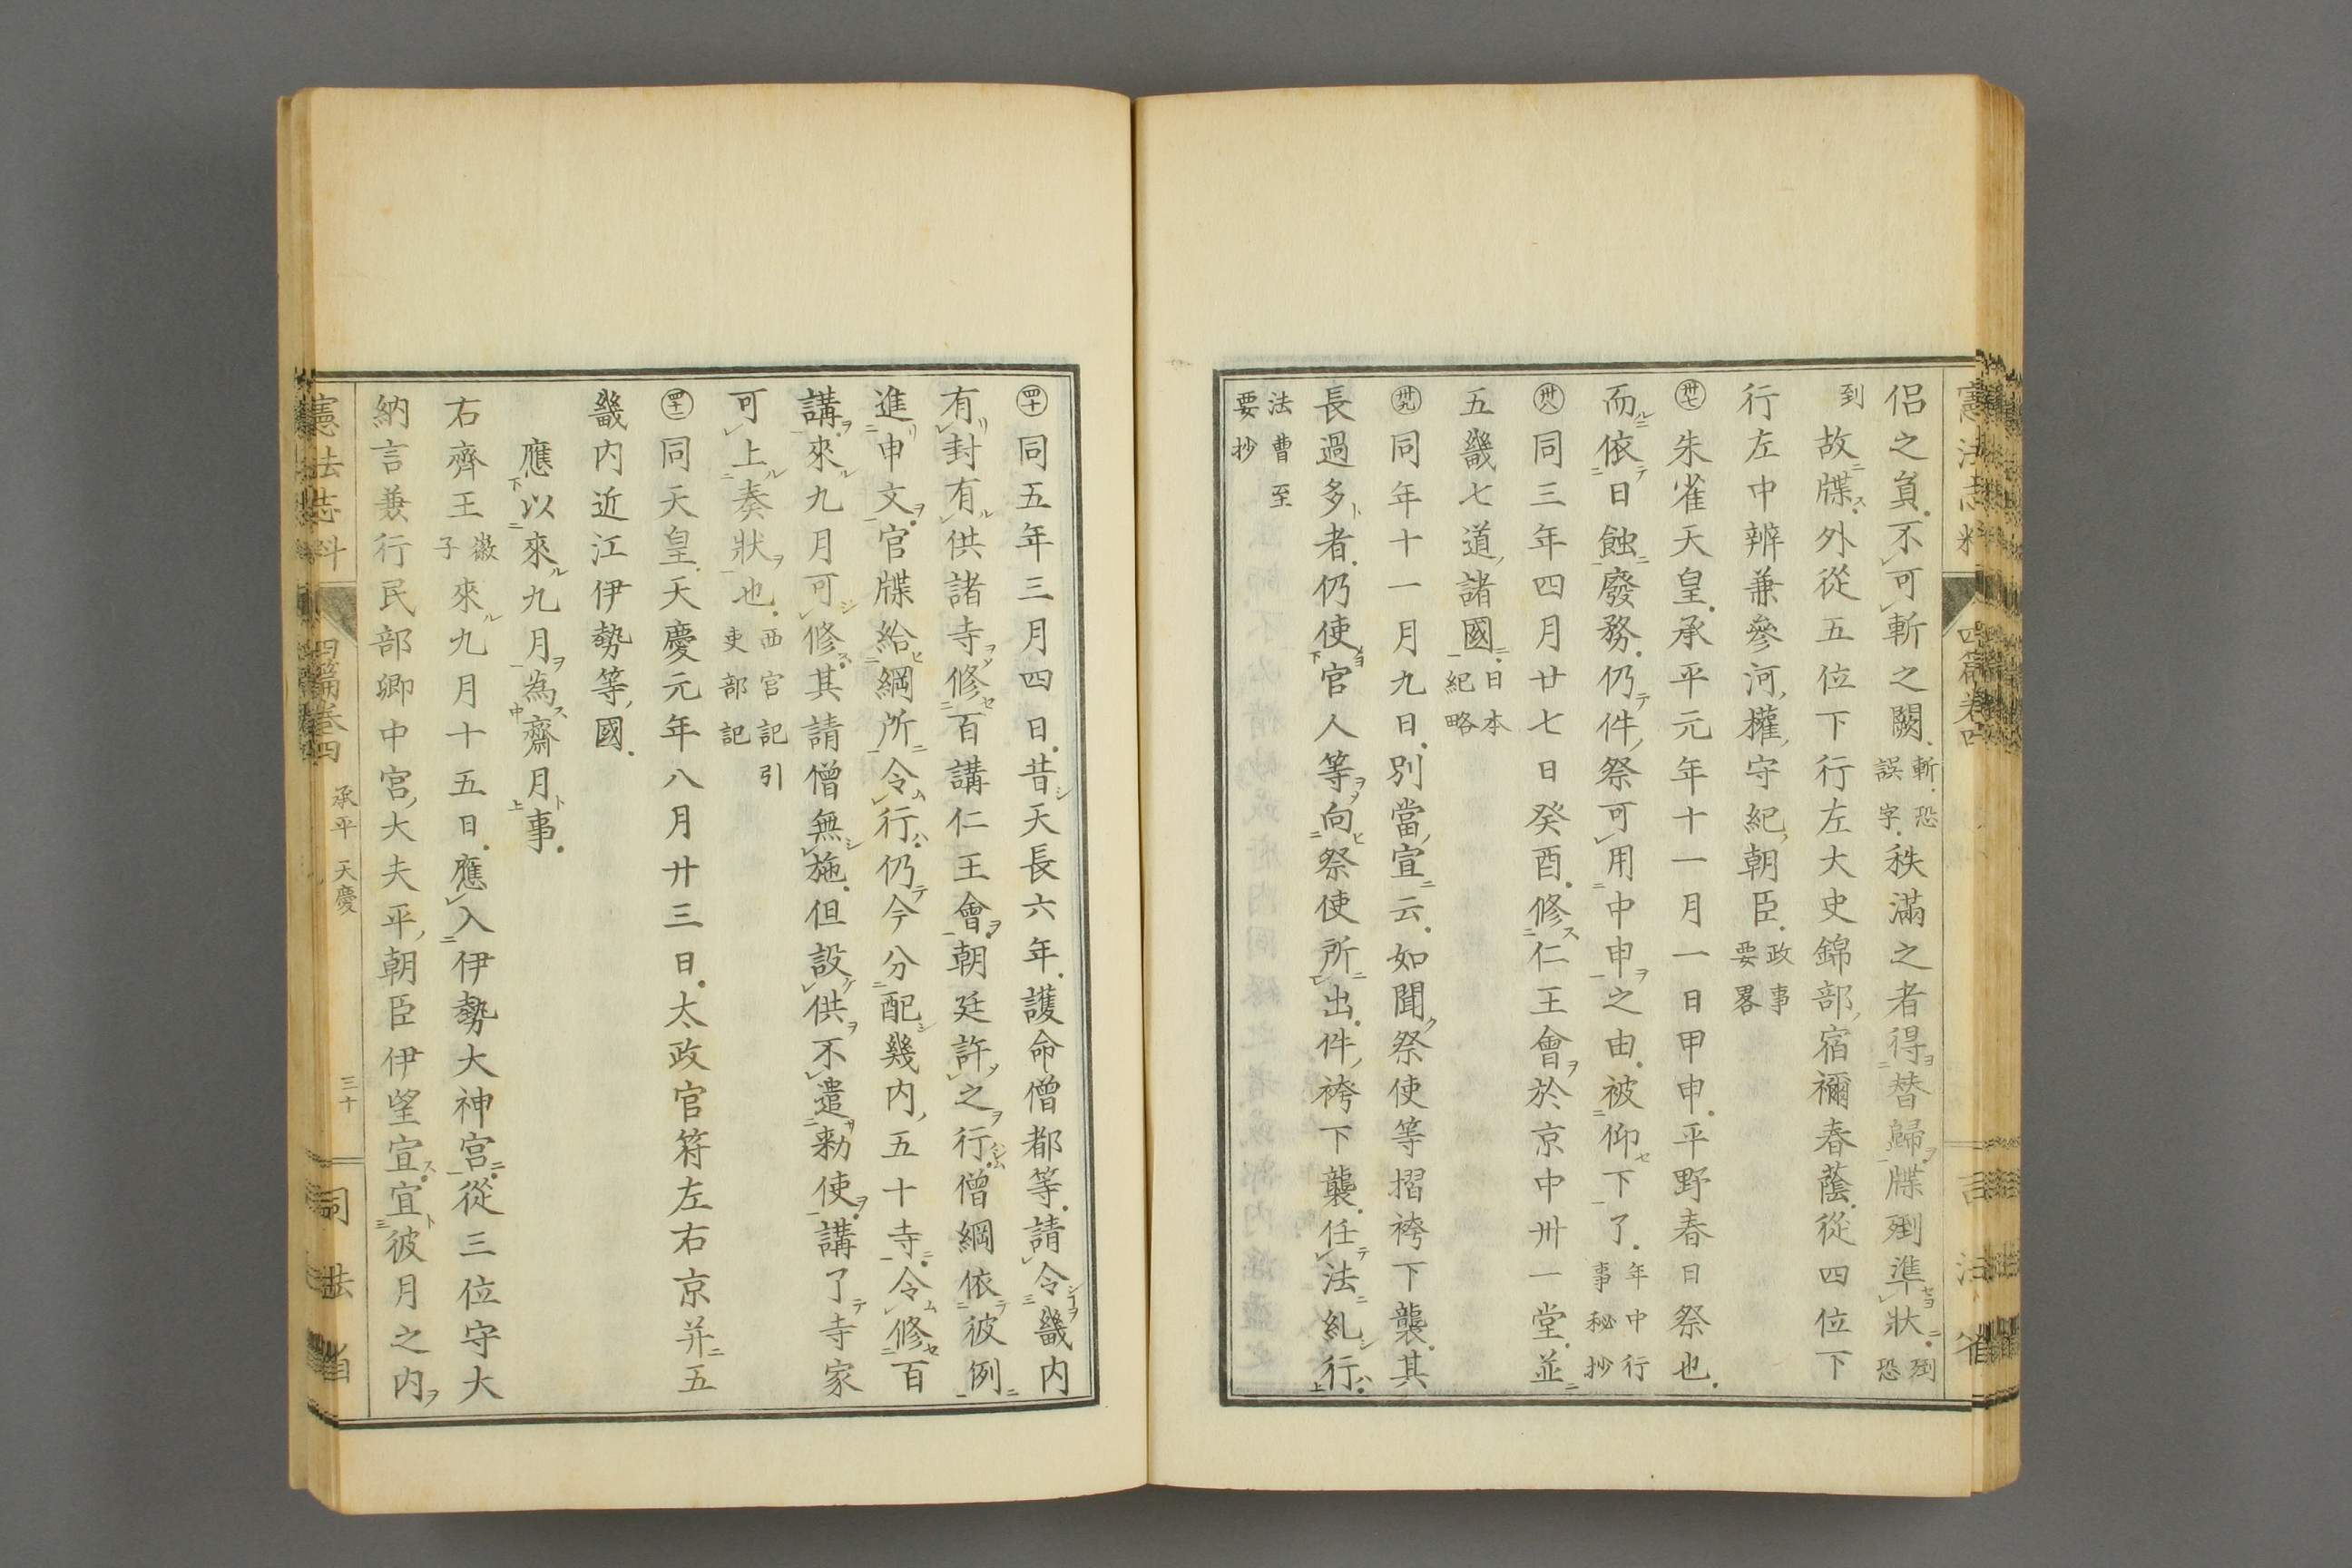 侶之負。不可斬之闕、斬恐誤字。秩滿之者得替歸牒到準狀。到恐
到 故牒。外從五位下行左大史錦部宿禰春蔭。從四位下
行左中辨兼參河權守紀朝臣。政事要畧
㊲朱雀天皇。承平元年十一月一日甲申。平野春日祭也。
而依日蝕廢務。仍件祭可用中申之由。被仰下了。年中行事秘抄
㊳同三年四月廿七日癸酉。修仁王會於京中卅一堂。並
五畿七道諸國。日本紀略
㊴同年十一月九日。別當宣云。如聞祭使等摺袴下襲。其
長過多者。仍使官人等向祭使所出。件袴下襲。任法糺行。
法曹至要抄
㊵同五年三月四日。昔天長六年。護命僧都等。請令畿内
有封有供諸寺修百講仁王會。朝廷許之行。僧綱依彼例
進申文。官牒給綱所令行。仍今分配幾内五十寺。令修百
講。來九月可修。其請僧無施。但設供不遣勅使。講了寺家
可上奏狀也。西宮記引吏部記
㊶同天皇。天慶元年八月廿三日。太政官符左右京并五
畿内近江伊勢等國。
應以來九月為齋月事。
右齊王徽子來九月十五日。應入伊勢大神宮。從三位守大
納言兼行民部卿中宮大夫平朝臣伊望宣。宜彼月之内
憲法志料 四篇卷四 承平 天慶 三十 司法省